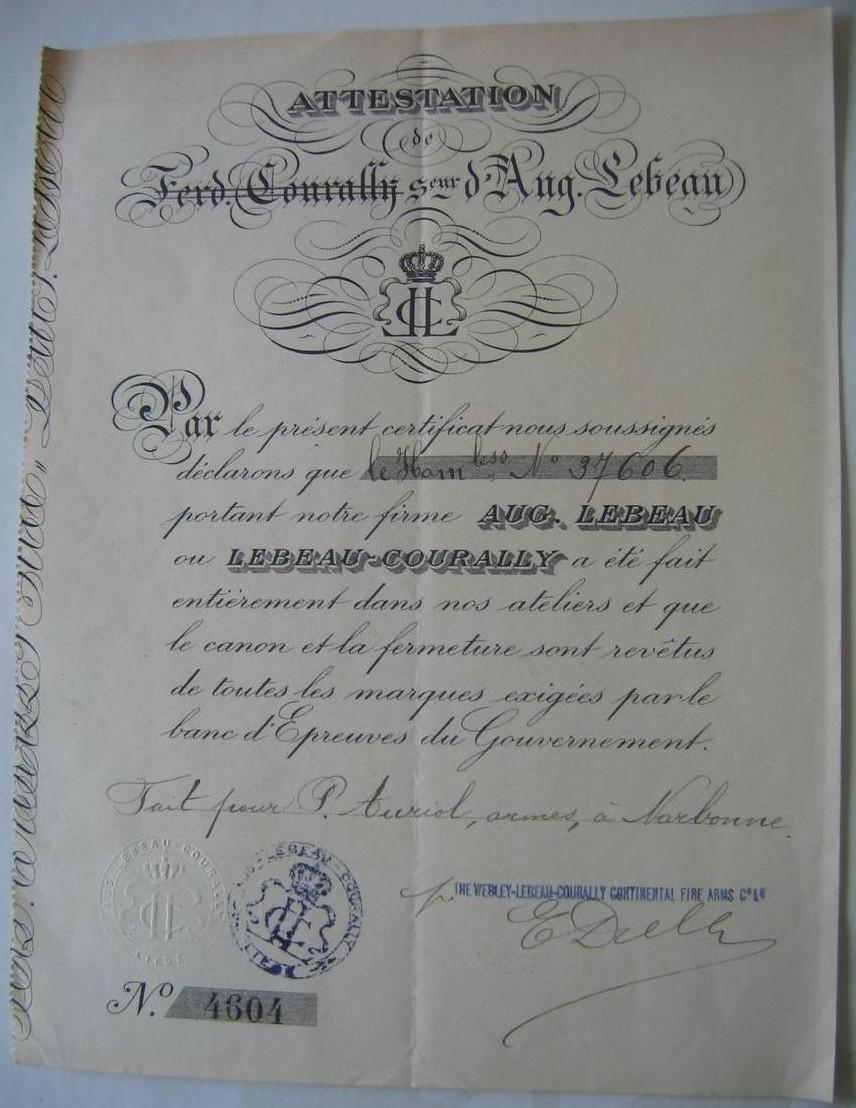 ATTESTATION
de
Ferd. Courally Seur d'Aug. Lebeau
Par le présent certificat nous soussignés
déclarons que le Ham less. No 37606.
portant notre firme AUG. LEBEAU
ou LEBEAU-COURALLY a été fait
entièrement dans nos ateliers et que
le canon et la fermeture sont revêtus
de toutes les marques exigées par le
banc d'Epreuves du Gouvernement.
Fait pour P. Auriol, armes, à Narbonne.
AUG LEBEAU COURALLY
LIEGE
LEBEAU-COURALLY
THE WEBLEY-LEBEAU-COURALLY CONTINENTAL FIRE ARMS Co Ld
No. 4604